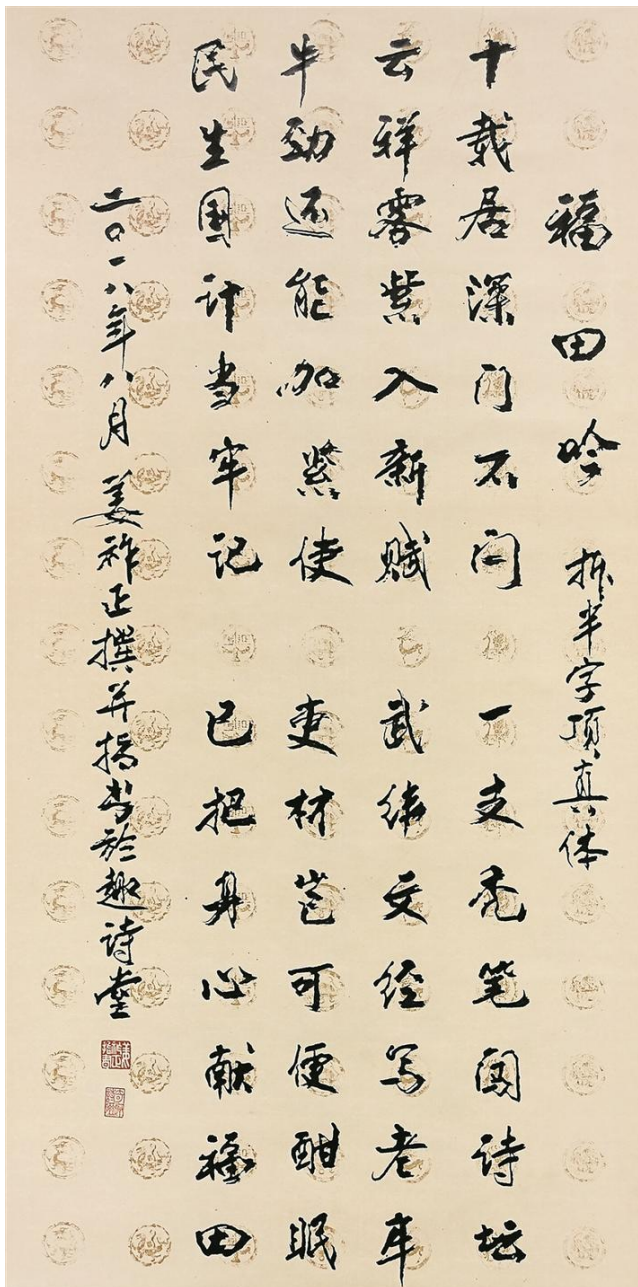 福田吟 拆半字顶真体
十载居深门不闩 一支秃笔闯诗坛
云祥雾紫入新赋 武纬文经写老年
牛劲还能加紧使 吏材岂可便酣眠
民生国计当牢记 已把身心献福田
二〇一八年八月 姜祚正撰并指书於趣诗堂